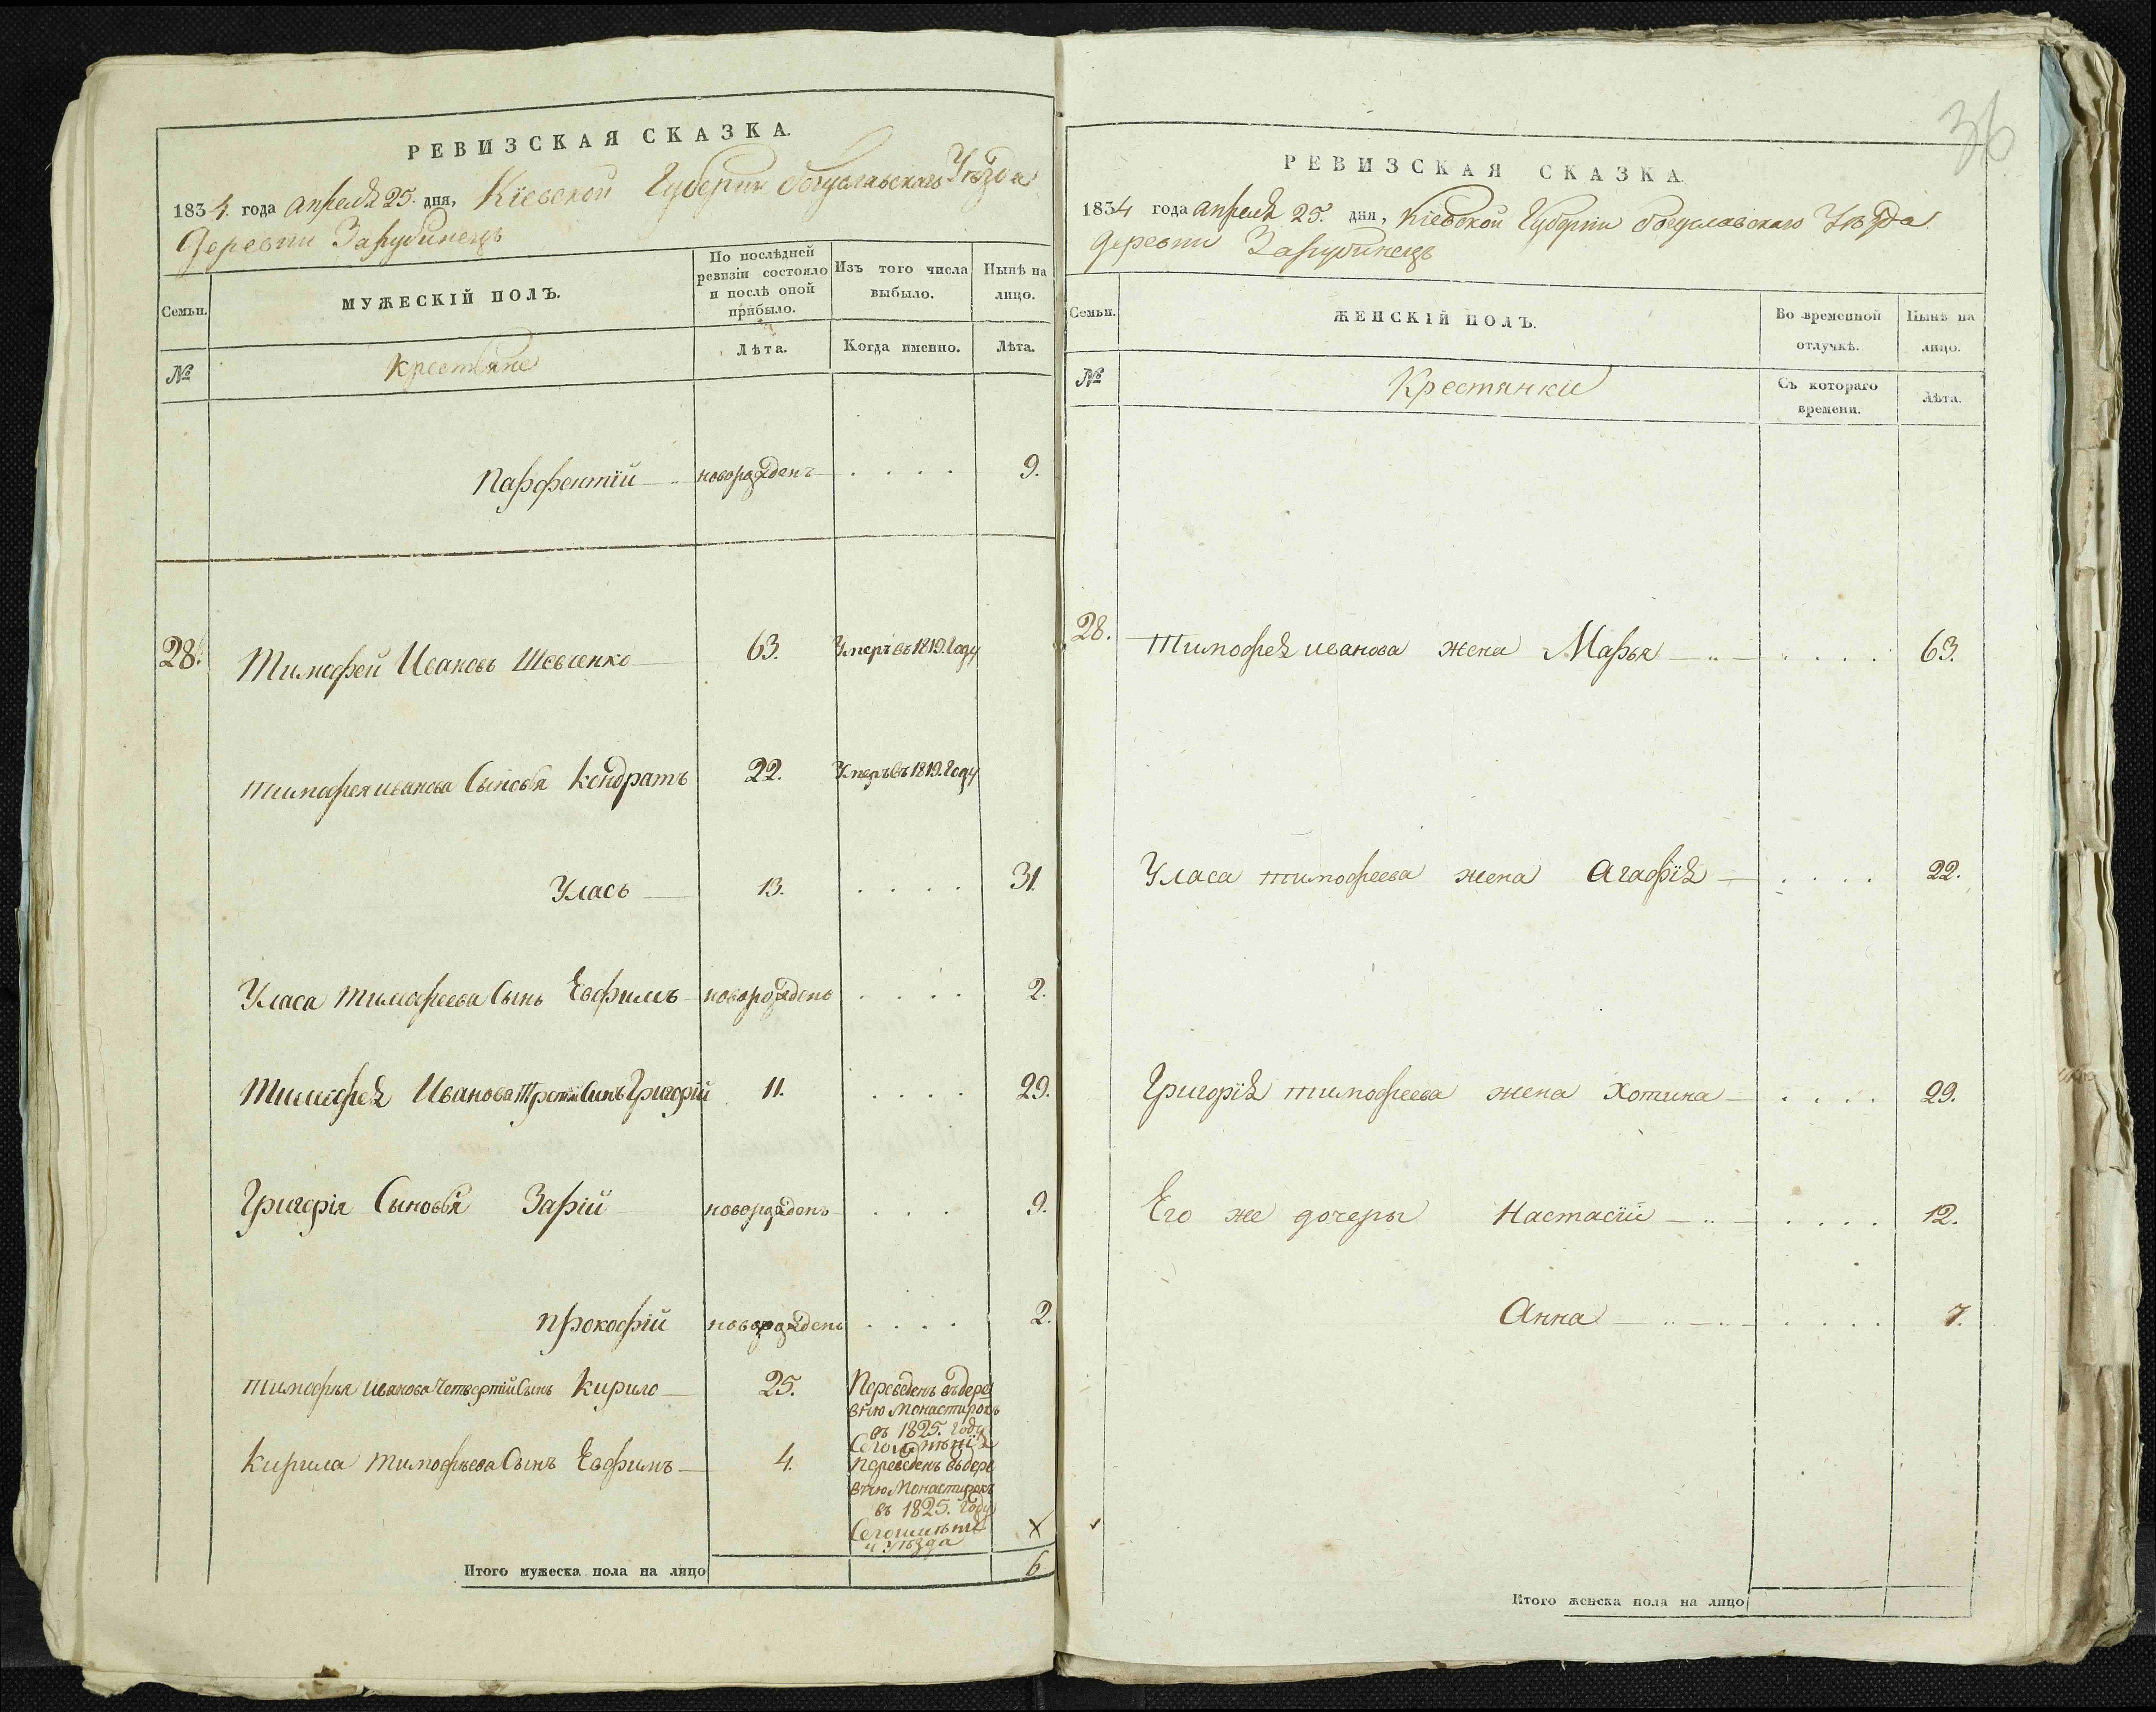 36
РЕВИЗСКАЯ СКАЗКА.
1834. года апреля 25. дня, Кіевской Губерніи Богуславскаго Уѣзда
Деревни Зарубинецъ
Семьи.
МУЖЕСКІЙ ПОЛЪ.
По послѣдней ревизіи состояло и послѣ оной прибыло.
Изъ того числа выбыло.
Нынѣ на лицо.
№
Крестьяне
Лѣта.
Когда именно.
Лѣта.
Парфентій новорожденъ 9.
28. Тимофей Ивановъ Шевченко 63. Умеръ въ 1819. Году
Тимофея Иванова Сыновья Кондратъ 22. Умеръ въ 1819. Году
Уласъ 13. 31.
Уласа Тимофеева Сынъ Евфимъ новорожденъ 2.
Тимофея Иванова Третій Сынъ Григорій 11. 29.
Григорія Сыновья Захій новорожденъ 9.
Прокофій новорожденъ 2.
Тимофея Иванова Четвертій Сынъ Кирило 25. Переведенъ въ дере
вню Монастирокъ
въ 1825. Году
Кирила Тимофѣева Сынъ Евфимъ 4. Переведенъ въ дере
вню Монастирокъ
въ 1825. Году
Уѣзда
Итого мужеска пола на лицо 6
РЕВИЗСКАЯ СКАЗКА
1834 года апреля 25. дня, Кіевской Губерніи Богуславскаго Уѣзда
Деревни Зарубинецъ
Семьи.
ЖЕНСКІЙ ПОЛЪ.
Во временной отлучкѣ.
Нынѣ на лицо.
№
Крестянки
Съ котораго времени.
Лѣта.
28. Тимофея Иванова жена Марья 63.
Уласа Тимофеева жена Агафія 22.
Григорія Тимофеева жена Хотина 29.
Его же дочеры Настасій 12.
Анна 7.
Итого женска пола на лицо